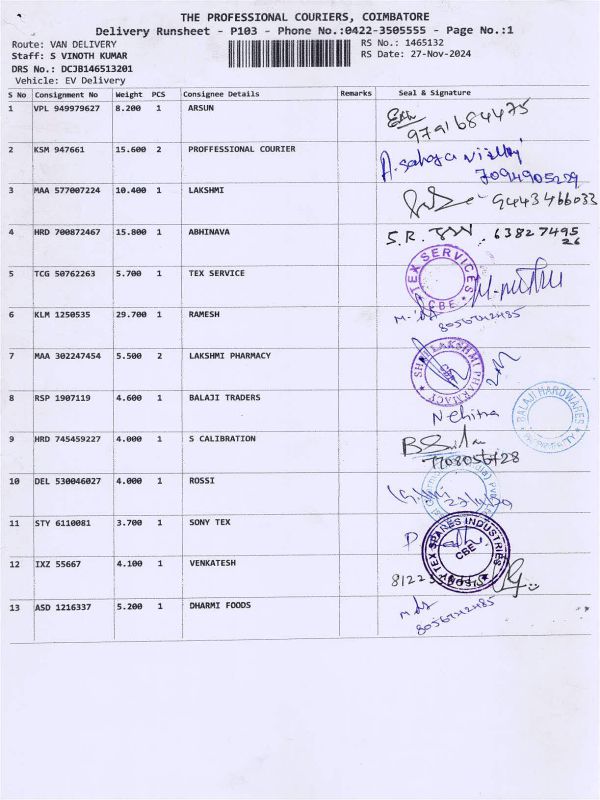 THE PROFESSIONAL COURIERS, COIMBATORE
Delivery Runsheet - P103 - Phone No.:0422-3505555 - Page No.:1
Route: VAN DELIVERY
RS No.: 1465132
Staff: S VINOTH KUMAR
RS Date: 27-Nov-2024
DRS No.: DCJB146513201
Vehicle: EV Delivery
S No Consignment No Weight PCS Consignee Details Remarks Seal & Signature
1 VPL 949979627 8.200 1 ARSUN
9791684475
2 KSM 947661 15.600 2 PROFFESSIONAL COURIER
7094905229
3 MAA 577007224 10.400 1 LAKSHMI 9443466033
4 HRD 700872467 15.800 1 ABHINAVA S.R. 6382749526
5 TCG 50762263 5.700 1 TEX SERVICE
TEX SERVICES
CBE
6 KLM 1250535 29.700 1 RAMESH
7 MAA 302247454 5.500 2 LAKSHMI PHARMACY
LAKSHMI PHARMACY
8 RSP 1907119 4.600 1 BALAJI TRADERS
BALAJI HARDWARES
N Chitra
9 HRD 745459227 4.000 1 S CALIBRATION
10 DEL 530046027 4.000 1 ROSSI
11 STY 6110081 3.700 1 SONY TEX
TEX SPARES INDUSTRIES
CBE
12 IXZ 55667 4.100 1 VENKATESH
13 ASD 1216337 5.200 1 DHARMI FOODS